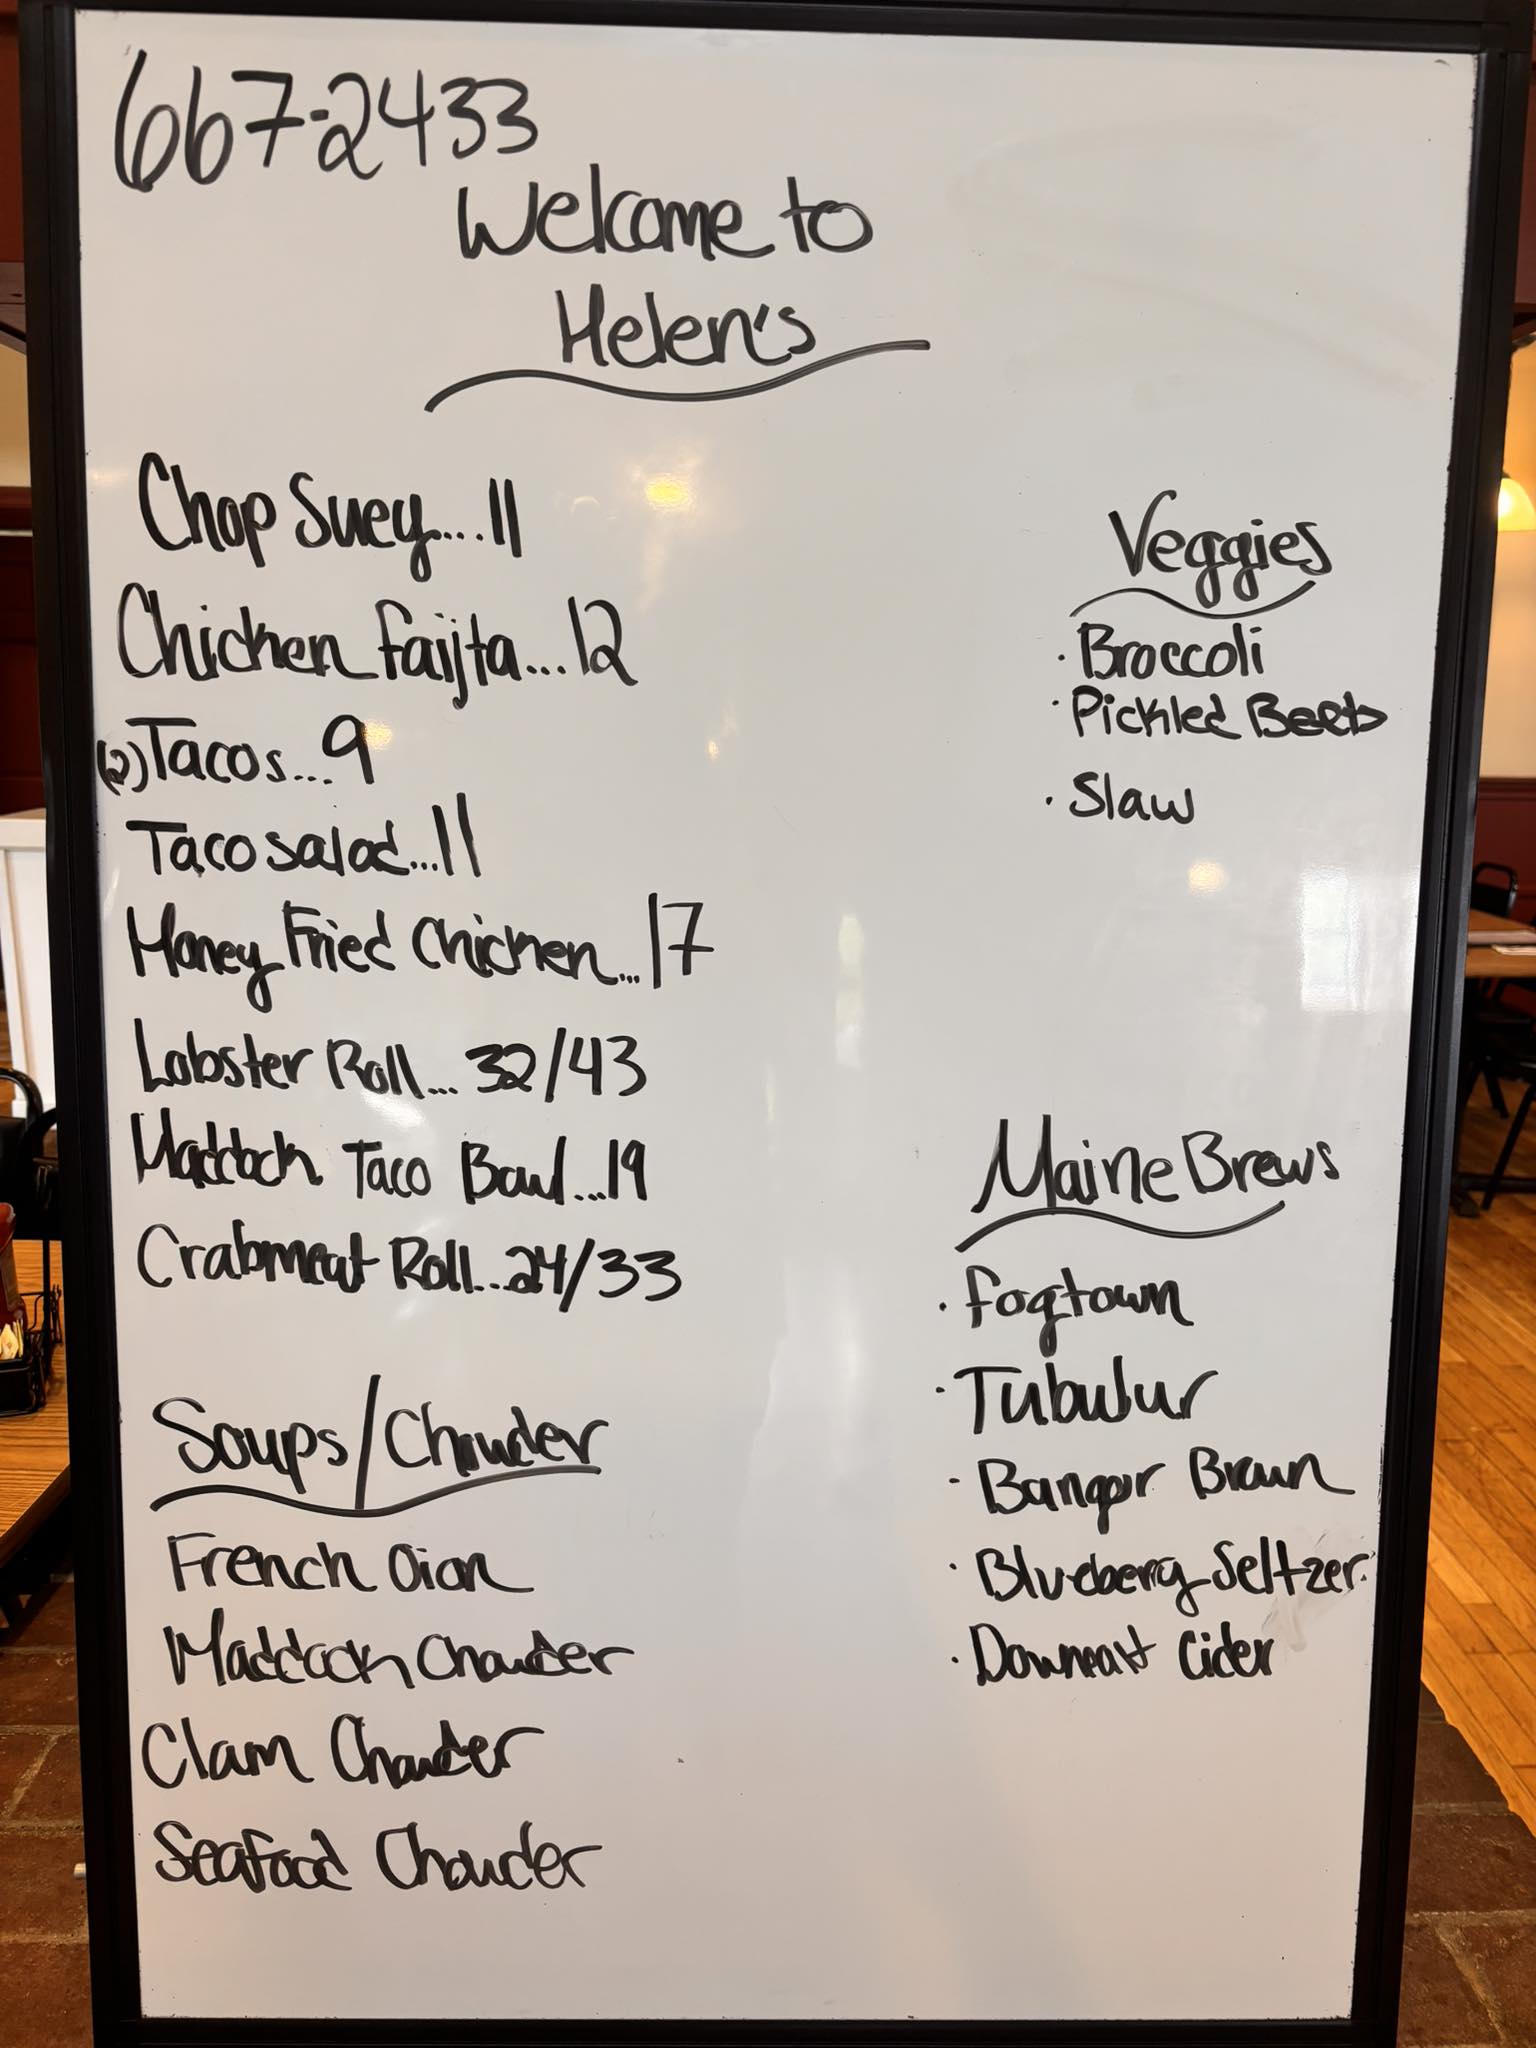 667-2433
Welcome to
Helen's
Chop Suey....11
Chicken Faijta...12
(2) Tacos...9
Taco salad...11
Honey Fried Chicken...17
Lobster Roll... 32/43
Haddock Taco Bowl...19
Crabmeat Roll...24/33
Soups/Chowder
French Oion
Haddock Chowder
Clam Chowder
Seafood Chowder
Veggies
· Broccoli
· Pickled Beets
· Slaw
Maine Brews
· Fogtown
· Tubulur
· Bangor Brown
· Blueberry Seltzer
· Downeast Cider